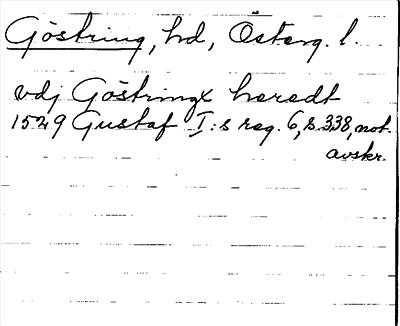 Göstring, hd, Österg. l.
vdj Göstringx heredt
1529 Gustaf I:s reg. 6, s. 338, not.
avskr.